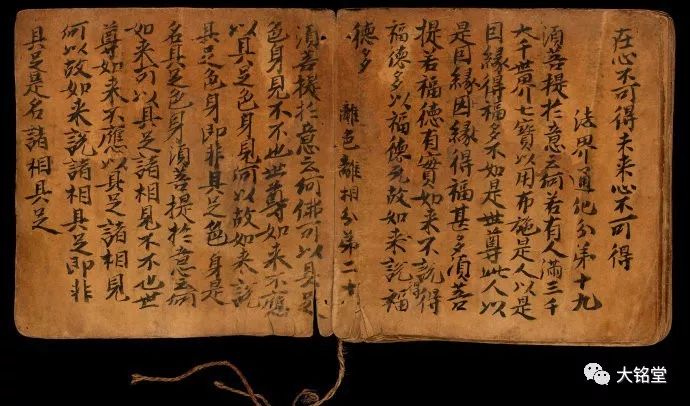 在心不可得未来心不可得
法界通化分第十九
須菩提於意云何若有人滿三千
大千世界七寶以用布施是人以是
因緣得福多不如是世尊此人以
是因緣因緣得福甚多須菩
提若福德有實如来不說得
福德多以福德无故如来說福
德多
離色離相分第二十
須菩提於意云何佛可以具足
色身見不不也世尊如来不應
以具足色身見何以故如来說
具足色身即非具足色身是
名具足色身須菩提於意云何
如来可以具足諸相見不不也世
尊如来不應以具足諸相見
何以故如来說諸相具足即非
具足是名諸相具足
大铭堂